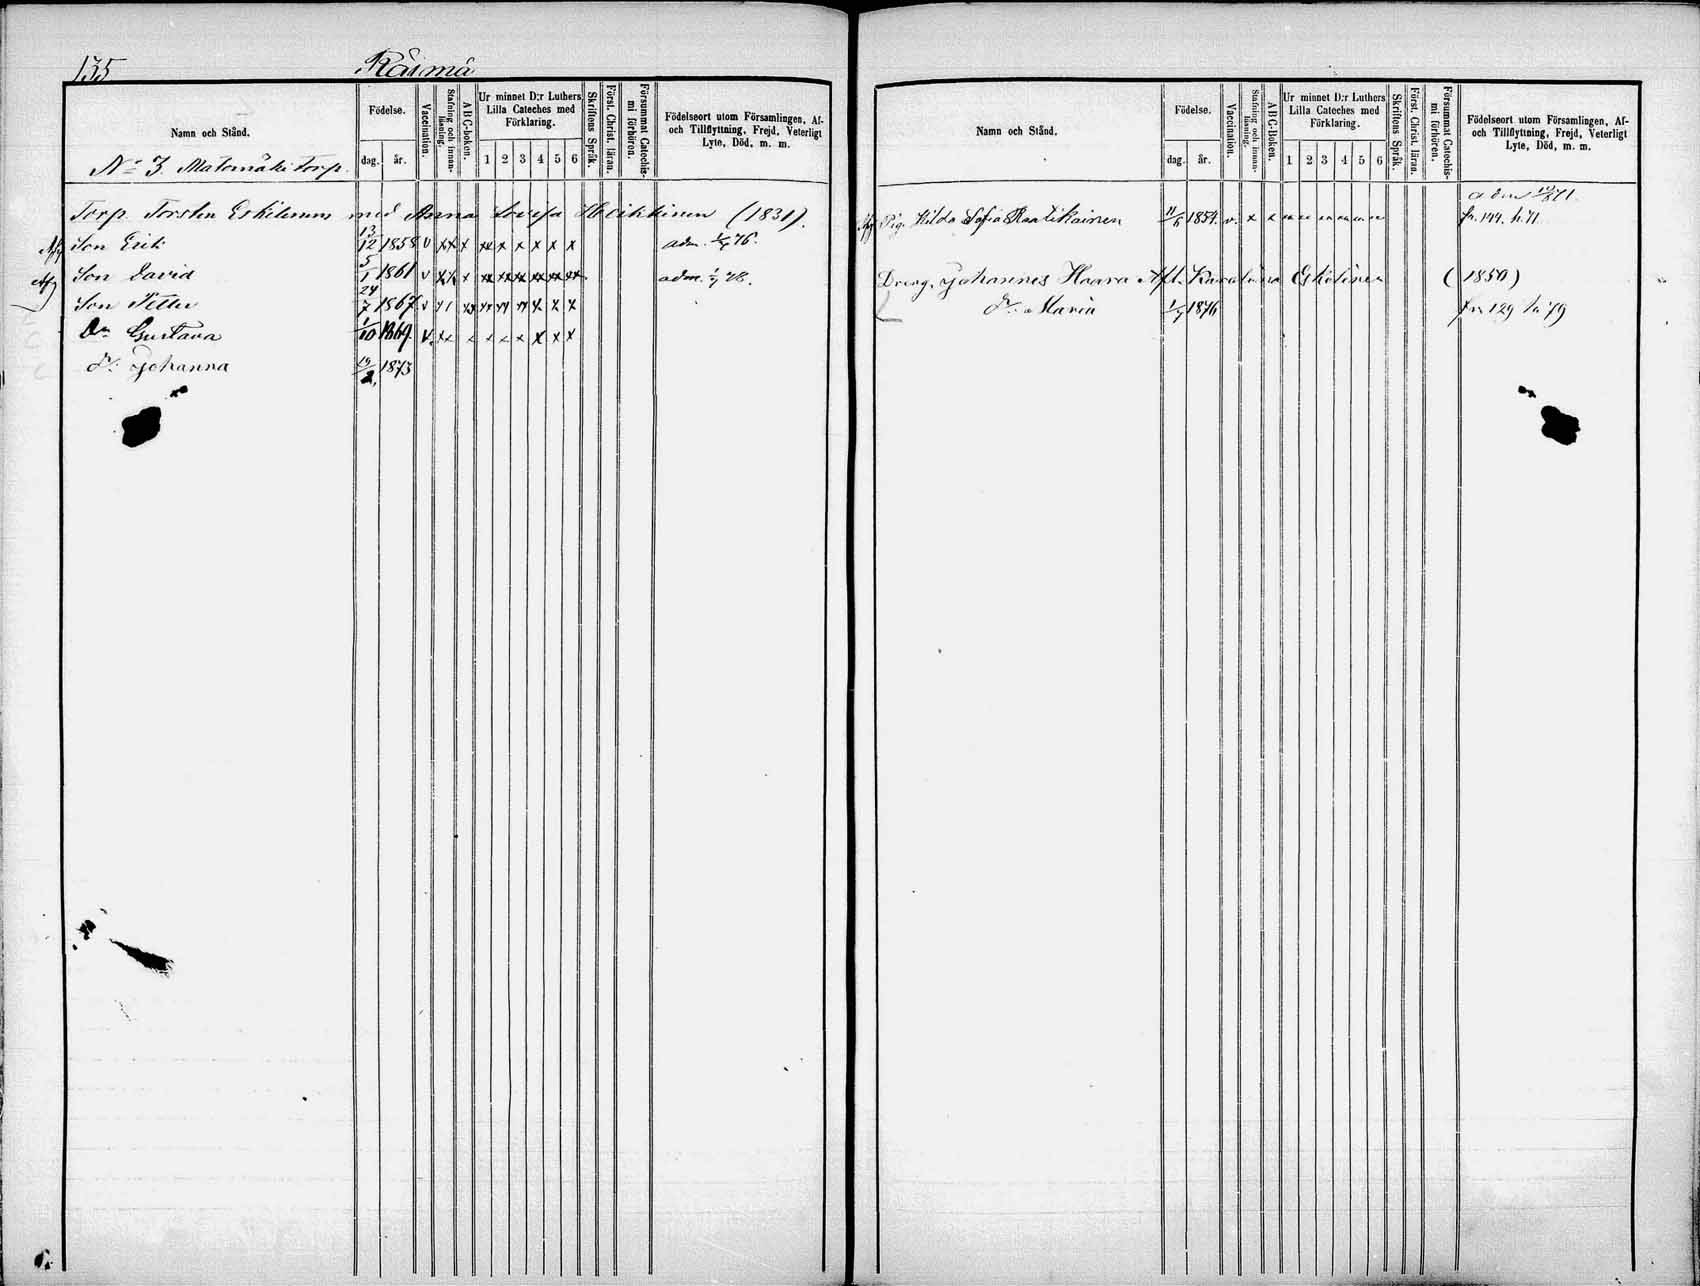 135 Räimä
Namn och Stånd.
Födelse.
dag. år.
Vaccination.
Stafning och innan-läsning.
ABC-boken.
Ur minnet D:r Luthers Lilla Cateches med Förklaring.
1 2 3 4 5 6
Skriftens Språk.
Först. Christ. läran.
Försummat Catechis-mi förhören.
Födelseort utom Församlingen, Af- och Tillflyttning, Frejd, Veterligt Lyte, Död, m. m.
No 3. Matomäki torp.
Torp. Torsten Eskelinen med Anna Lovisa Heikkinen (1831).
Son Erik 13/12 1858 v xx x xx x x x x x adm. 76.
Son David 5/1 1861 v xx x xx xx xx xx xx xx adm. 78.
Son Petter 24/7 1867 v
Dr Gustava 1/10 1869 v xx x x x x x x x
Dr Johanna 19/2 1873
Namn och Stånd.
Födelse.
dag. år.
Vaccination.
Stafning och innan-läsning.
ABC-boken.
Ur minnet D:r Luthers Lilla Cateches med Förklaring.
1 2 3 4 5 6
Skriftens Språk.
Först. Christ. läran.
Försummat Catechis-mi förhören.
Födelseort utom Församlingen, Af- och Tillflyttning, Frejd, Veterligt Lyte, Död, m. m.
adm 71.
Pig. Hilda Sofia Raatikainen 1854. v. x x fr. 144. h. 71.
Dreng. Johannes Haara Karolina Eskelinen (1850)
Dr. Maria 1876 fr. 129 h. 79